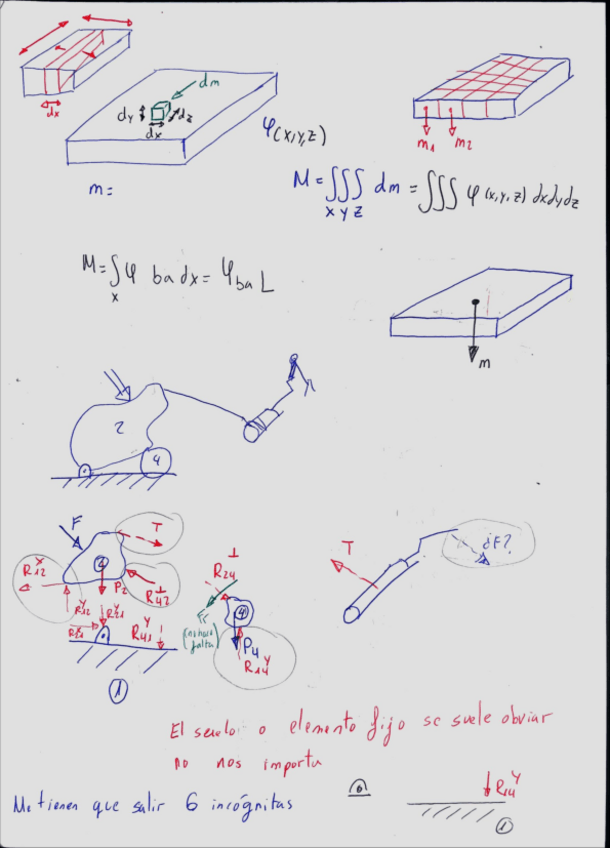 dx
dm
dy
dz
dx
φ(x,y,z)
m1 m2
m=
M = ∭ dm = ∭ φ (x,y,z) dxdydz
x y z
M = ∫ φ ba dx = φ ba L
x
m
2
4
F
T
R12 X
2
P2
R42 ⊥
R12 Y
R21 Y
R21 X
R41 Y
1
R24 ⊥
4
(no hace falta)
P4
R14 Y
T
¿F?
El suelo o elemento fijo se suele obviar
no nos importa
Me tienen que salir 6 incógnitas
R14 Y
1